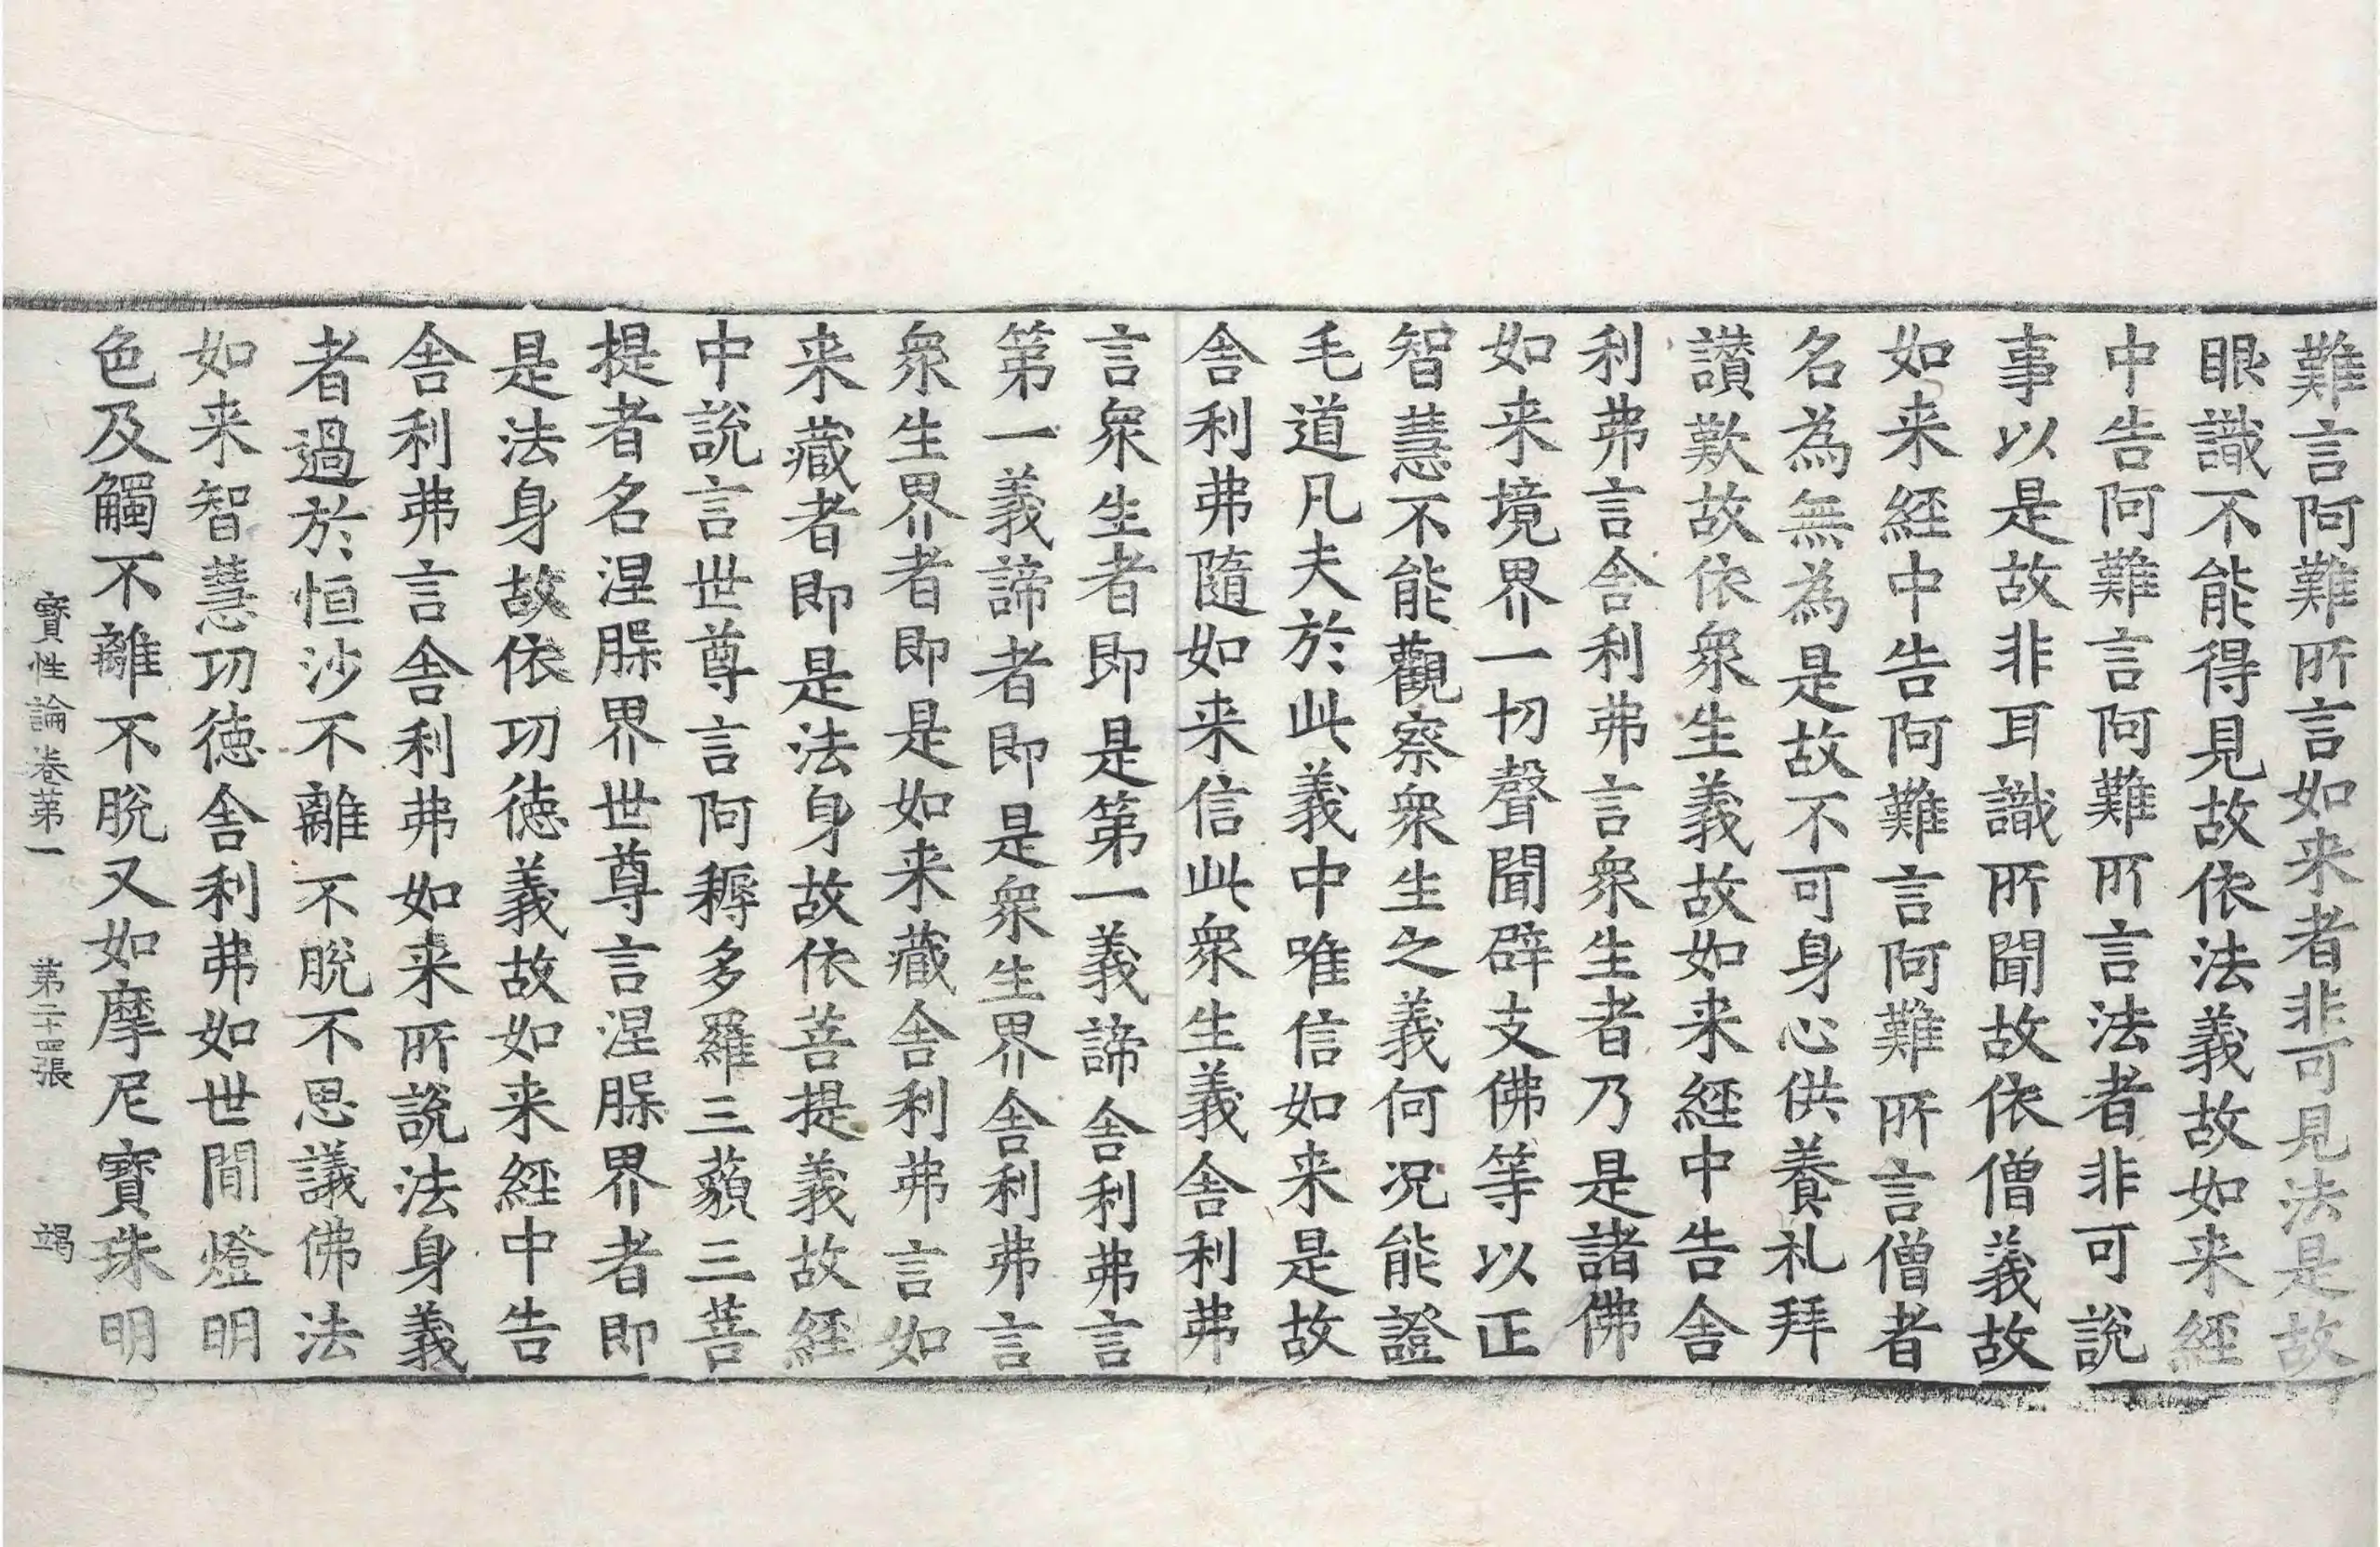 難言阿難所言如来者非可見法是故
眼識不能得見故依法義故如来經
中告阿難言阿難所言法者非可說
事以是故非耳識所聞故依僧義故
如来經中告阿難言阿難所言僧者
名為無為是故不可身心供養礼拜
讃歎故依衆生義故如来經中告舍
利弗言舍利弗言衆生者乃是諸佛
如来境界一切聲聞辟支佛等以正
智慧不能觀察衆生之義何況能證
毛道凡夫於此義中唯信如来是故
舍利弗隨如来信此衆生義舍利弗
言衆生者即是第一義諦舍利弗言
第一義諦者即是衆生界舍利弗言
衆生界者即是如来藏舍利弗言如
来藏者即是法身故依菩提義故經
中說言世尊言阿耨多羅三藐三菩
提者名涅槃界世尊言涅槃界者即
是法身故依功德義故如来經中告
舍利弗言舍利弗如来所說法身義
者過於恒沙不離不脫不思議佛法
如来智慧功德舍利弗如世間燈明
色及觸不離不脫又如摩尼寶珠明
寶性論卷第一 第二十四張 竭